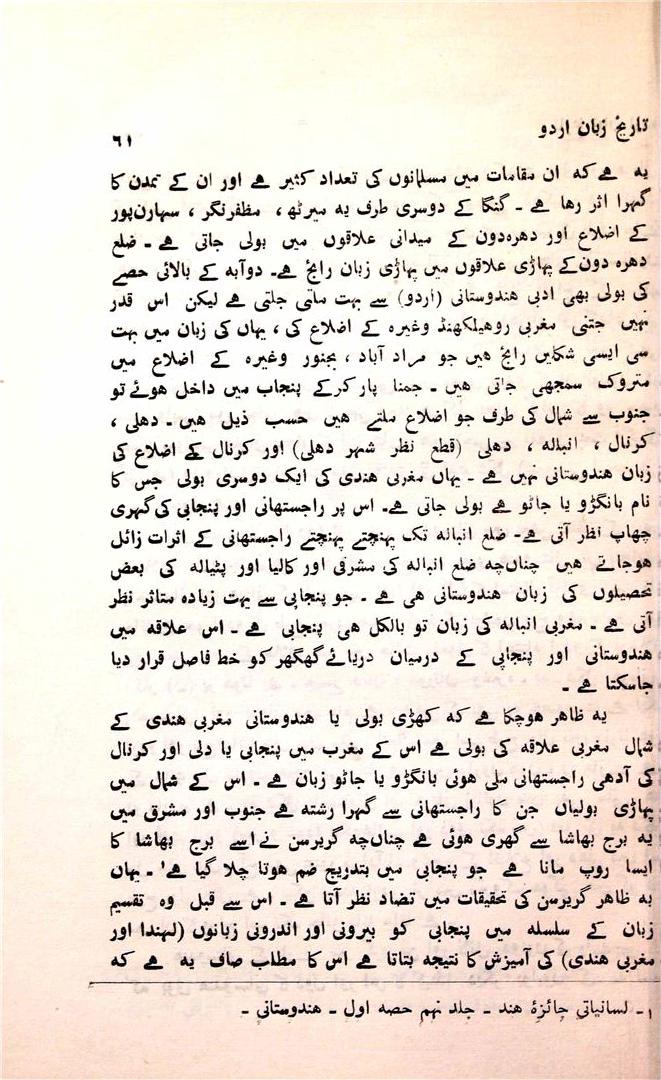 تاریخ زبان اردو
٦١
یہ ہے کہ ان مقامات میں مسلمانوں کی تعداد کثیر ہے اور ان کے تمدن کا
گہرا اثر رہا ہے ۔ گنگا کے دوسری طرف یہ میرٹھ ، مظفرنگر ، سہارن‌پور
کے اضلاع اور دھرہ‌دون کے میدانی علاقوں میں بولی جاتی ہے ۔ ضلع
دھرہ دون کے پہاڑی علاقوں میں پہاڑی زبان رایج ہے۔ دوآبہ کے بالائی حصے
کی بولی بھی ادبی ہندوستانی (اردو) سے بہت ملتی جلتی ہے لیکن اس قدر
نہیں جتنی مغربی روہیلکھنڈ وغیرہ کے اضلاع کی ، یہاں کی زبان میں بہت
سی ایسی شکلیں رایج ہیں جو مراد آباد ، بجنور وغیرہ کے اضلاع میں
متروک سمجھی جاتی ہیں ۔ جمنا پار کرکے پنجاب میں داخل ہوئے تو
جنوب سے شمال کی طرف جو اضلاع ملتے ہیں حسب ذیل ہیں ۔ دھلی ،
کرنال ، انبالہ ، دھلی (قطع نظر شہر دھلی) اور کرنال کے اضلاع کی
زبان ہندوستانی نہیں ہے ۔ یہاں مغربی ہندی کی ایک دوسری بولی جس کا
نام بانگڑو یا جاٹو ہے بولی جاتی ہے۔ اس پر راجستھانی اور پنجابی کی گہری
چھاپ نظر آتی ہے۔ ضلع انبالہ تک پہنچتے پہنچتے راجستھانی کے اثرات زائل
ہوجاتے ہیں چناں‌چہ ضلع انبالہ کی مشرقی اور کالیا اور پٹیالہ کی بعض
تحصیلوں کی زبان ہندوستانی ہی ہے ۔ جو پنجابی سے بہت زیادہ متاثر نظر
آتی ہے ۔ مغربی انبالہ کی زبان تو بالکل ہی پنجابی ہے ۔ اس علاقہ میں
ہندوستانی اور پنجابی کے درمیان دریائے گھگھر کو خط فاصل قرار دیا
جاسکتا ہے ۔
یہ ظاہر ہوچکا ہے کہ کھڑی بولی یا ہندوستانی مغربی ہندی کے
شمال مغربی علاقہ کی بولی ہے اس کے مغرب میں پنجابی یا دلی اور کرنال
کی آدھی راجستھانی ملی ہوئی بانگڑو یا جاٹو زبان ہے ۔ اس کے شمال میں
پہاڑی بولیاں جن کا راجستھانی سے گہرا رشتہ ہے جنوب اور مشرق میں
یہ برج بھاشا سے گھری ہوئی ہے چناں‌چہ گریرسن نے اسے برج بھاشا کا
ایسا روپ مانا ہے جو پنجابی میں بتدریج ضم ہوتا چلا گیا ہے¹ ۔ یہاں
بہ ظاہر گریرسن کی تحقیقات میں تضاد نظر آتا ہے ۔ اس سے قبل وہ تقسیم
زبان کے سلسلہ میں پنجابی کو بیرونی اور اندرونی زبانوں (لہندا اور
مغربی ہندی) کی آمیزش کا نتیجہ بتاتا ہے اس کا مطلب صاف یہ ہے کہ
۱ ۔ لسانیاتی جائزۂ ہند ۔ جلد نہم حصہ اول ۔ ہندوستانی ۔